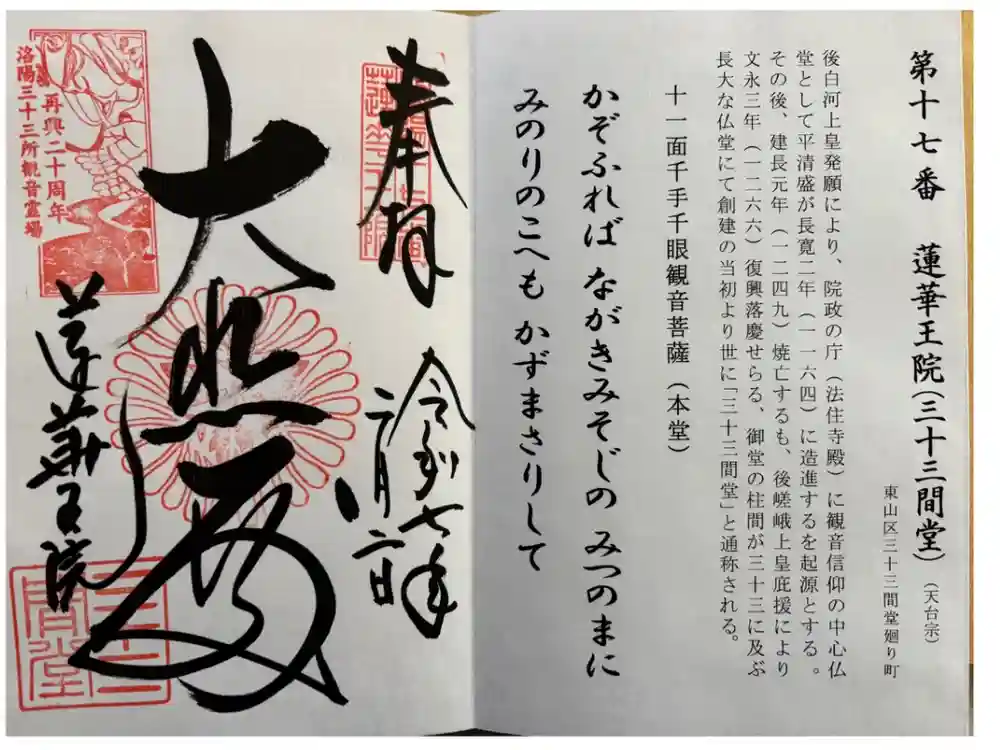 第十七番 蓮華王院（三十三間堂）（天台宗）
東山区三十三間堂廻り町
後白河上皇発願により、院政の庁（法住寺殿）に観音信仰の中心仏
堂として平清盛が長寛二年（一一六四）に造進するを起源とする。
その後、建長元年（一二四九）焼亡するも、後嵯峨上皇庇援により
文永三年（一二六六）復興落慶せらる、御堂の柱間が三十三に及ぶ
長大な仏堂にて創建の当初より世に「三十三間堂」と通称される。
十一面千手千眼観音菩薩（本堂）
かぞふれば ながきみそじの みつのまに
みのりのこへも かずまさりして
奉拝
令和七年
二月二日
大悲殿
蓮華王院
再興二十周年
洛陽三十三所観音霊場
三十三間堂